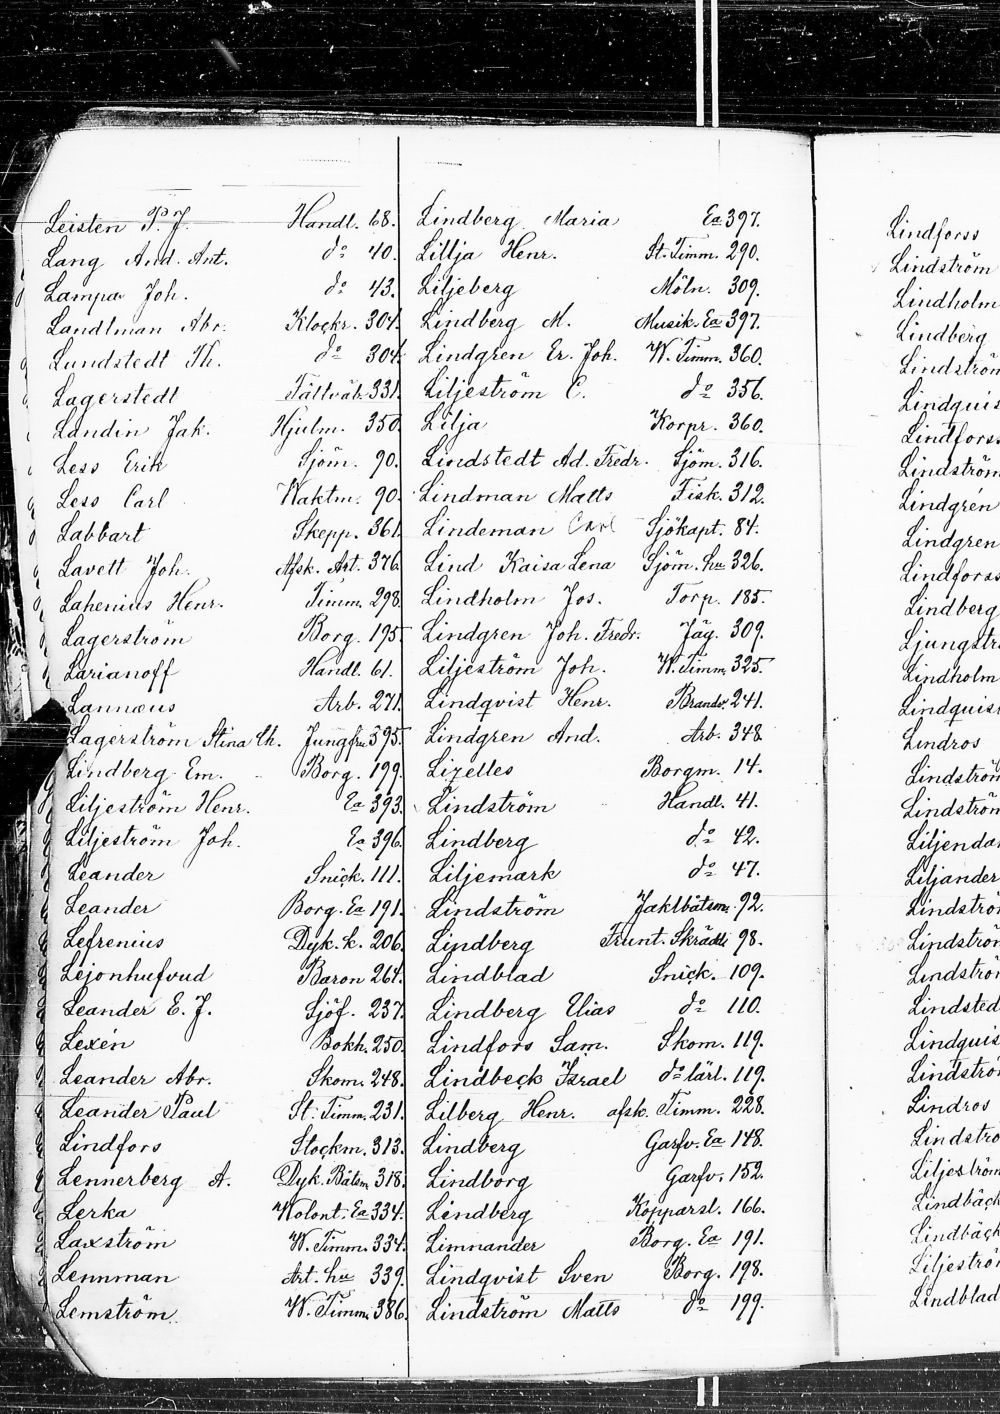 Leisten P. J. Handl. 68.
Lang And. Ant. do 40.
Lampa Joh. do 43.
Landtman Abr. Klockr. 304.
Lundstedt Th. do 304.
Lagerstedt Fältväb. 331.
Landin Jak. Hjulm. 350.
Less Erik Sjöm. 90.
Less Carl Waktm. 90.
Labbart Skepp. 361.
Lavett Joh. Afsk. Art. 376.
Lahenius Henr. Timm. 298.
Lagerström Borg. 195.
Larianoff Handl. 61.
Lannœus Arb. 271.
Lagerström Stina Ch. Jungfru 395.
Lindberg Em. Borg. 199.
Liljeström Henr. Ea 393.
Liljeström Joh. Ea 396.
Leander Snick. 111.
Leander Borg. Ea 191.
Lefrenius Dyk. k. 206.
Lejonhufvud Baron 264.
Leander E. J. Sjöf. 237.
Lexén Bokh. 250.
Leander Abr. Skom. 248.
Leander Paul St. Timm. 231.
Lindfors Stockm. 313.
Lennerberg A. Dyk. Båtsm. 318.
Lerka Wolont. Ea 334.
Laxström W. Timm. 334.
Lennman Art. hu 339.
Lemström W. Timm. 386.
Lindberg Maria Ea 397.
Lillja Henr. St. Timm. 290.
Liljeberg Möln. 309.
Lindberg M. Musik. Ea 397.
Lindgren Er. Joh. W. Timm. 360.
Liljeström C. do 356.
Lilja Korpr. 360.
Lindstedt Ad. Fredr. Sjöm. 316.
Lindman Matts Fisk. 312.
Lindeman Carl Sjökapt. 84.
Lind Kaisa Lena Sjöm. hu 326.
Lindholm Jos. Torp. 185.
Lindgren Joh. Fredr. Jäg. 309.
Liljeström Joh. W. Timm. 325.
Lindqvist Henr. Brandv. 241.
Lindgren And. Arb. 348
Lizelles Borgm. 14.
Lindström Handl. 41.
Lindberg do 42.
Liljemark do 47.
Lindström Jaktbåtsm. 92.
Lindberg Skrädd 98.
Lindblad Snick. 109.
Lindberg Elias do 110.
Lindfors Sam. Skom. 119.
Lindbeck Israel do lärl. 119.
Lilberg Henr. afsk. Timm. 228.
Lindberg Garfv. Ea 148.
Lindborg Garfv. 152.
Lindberg Kopparsl. 166.
Limnander Borg. Ea 191.
Lindqvist Sven Borg. 198.
Lindström Matts do 199.
Lindforss
Lindström
Lindholm
Lindberg
Lindström
Lindquis
Lindforss
Lindström
Lindgrén
Lindgren
Lindforss
Lindberg
Ljungstr
Lindholm
Lindquis
Lindros
Lindström
Lindström
Liljenda
Liljander
Lindströ
Lindströ
Lindströ
Lindsted
Lindquis
Lindströ
Lindros
Lindströ
Liljeström
Lindbäck
Lindbäck
Liljeströ
Lindblad